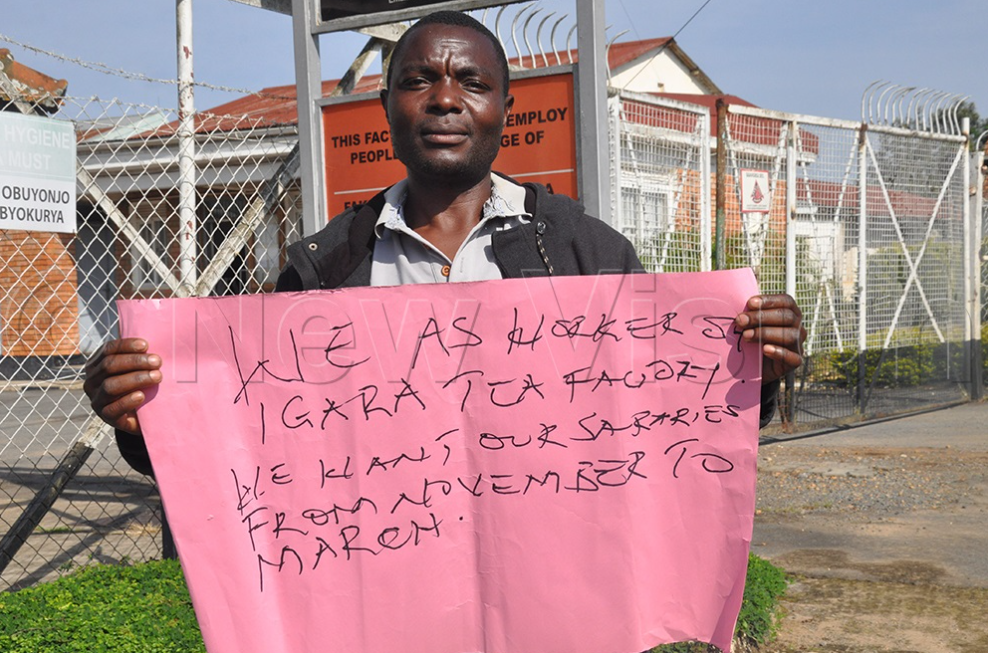 HYGIENE
MUST
OBUYONJO
BYOKURYA
THIS FAC EMPLOY
PEOPL GE OF
New Vis
WE AS WORKER OF
IGARA TEA FACTORY.
WE WANT OUR SARARIES
FROM NOVEMBER TO
MARCH.